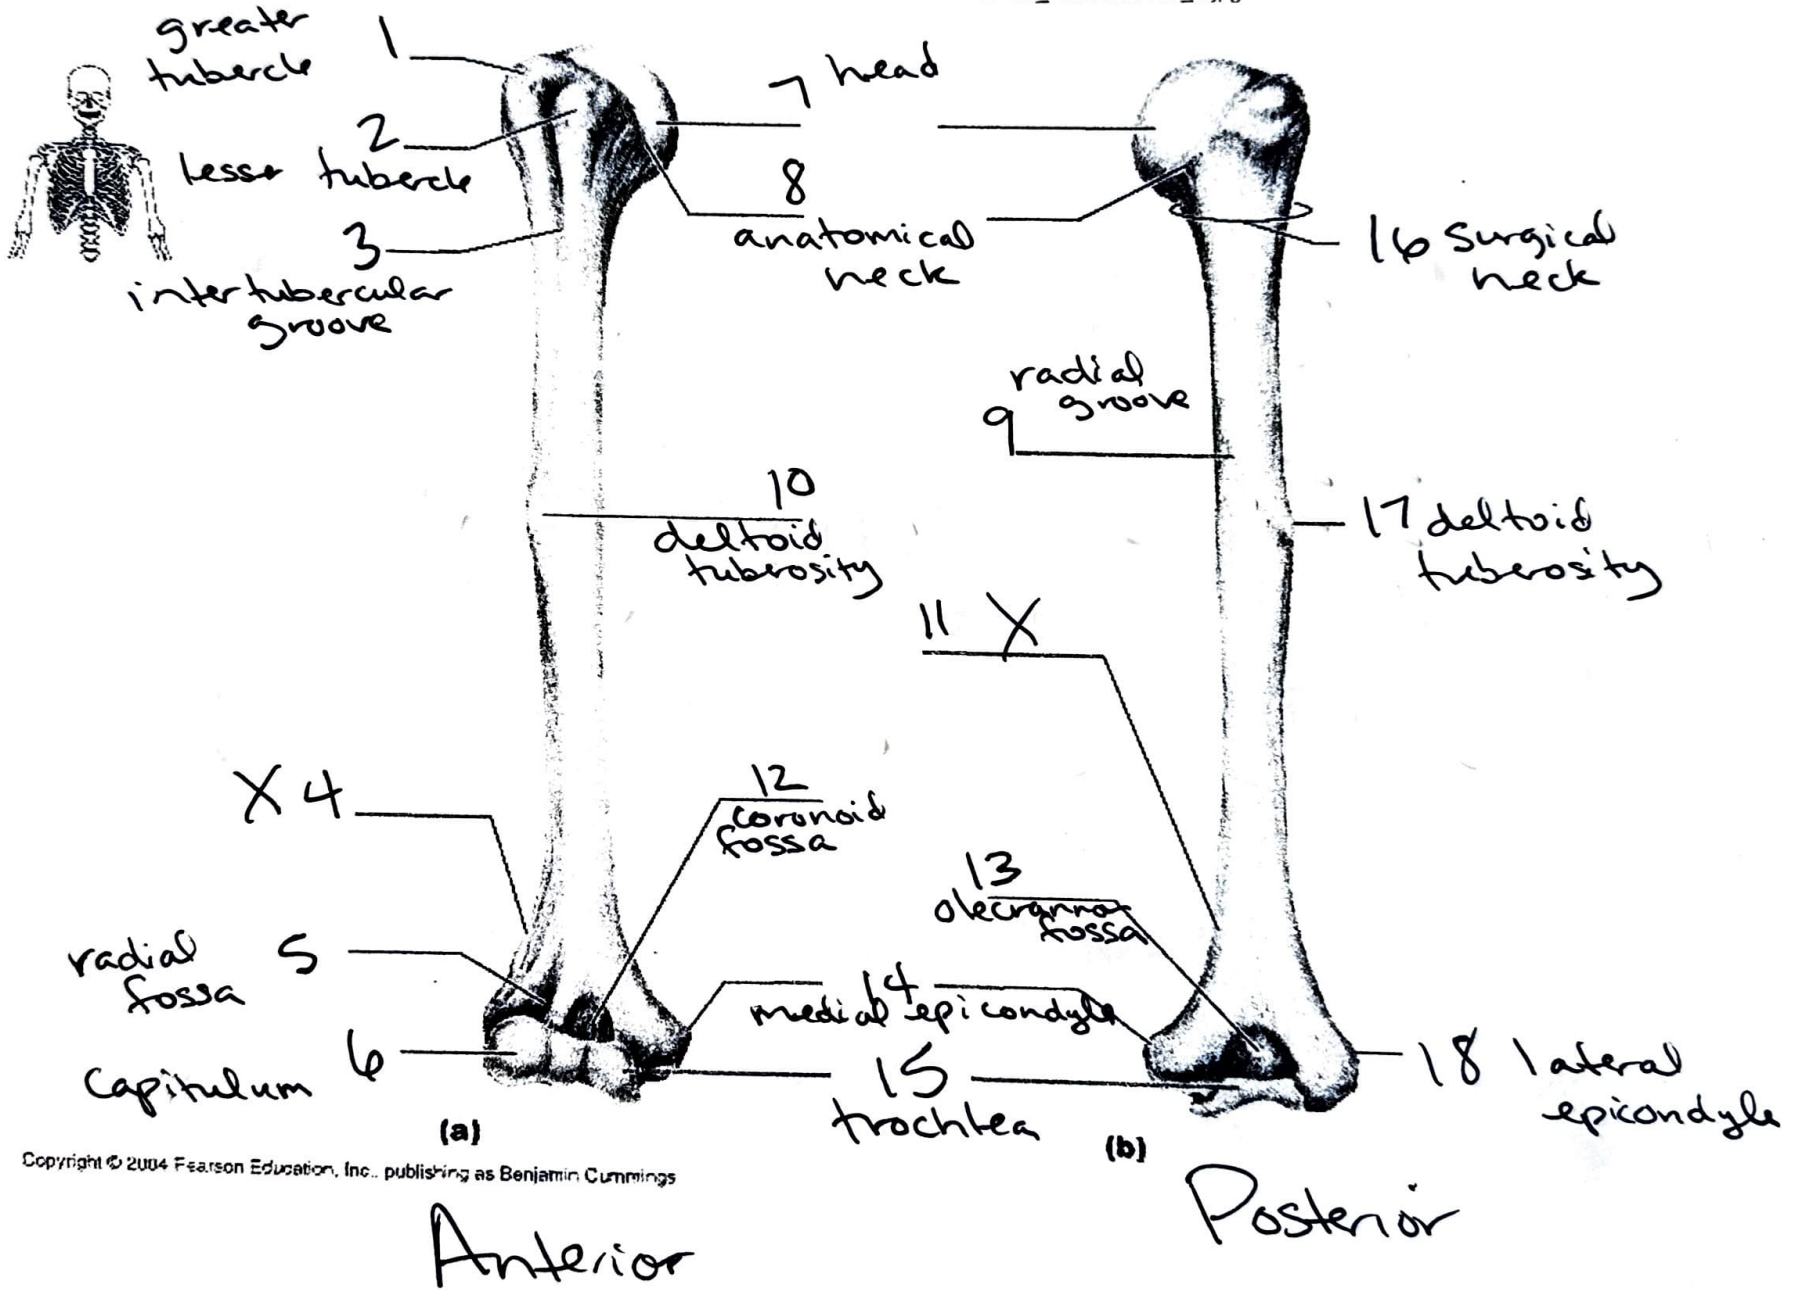 greater
tubercle
1
2
lesser tubercle
3
intertubercular
groove
7 head
8
anatomical
neck
16 surgical
neck
radial
groove
9
10
deltoid
tuberosity
17 deltoid
tuberosity
11 X
X 4
12
coronoid
fossa
13
olecrannon
fossa
radial
fossa
5
14
medial epicondyle
6
capitulum
15
trochlea
18 lateral
epicondyle
(a)
(b)
Copyright © 2004 Pearson Education, Inc., publishing as Benjamin Cummings
Anterior
Posterior